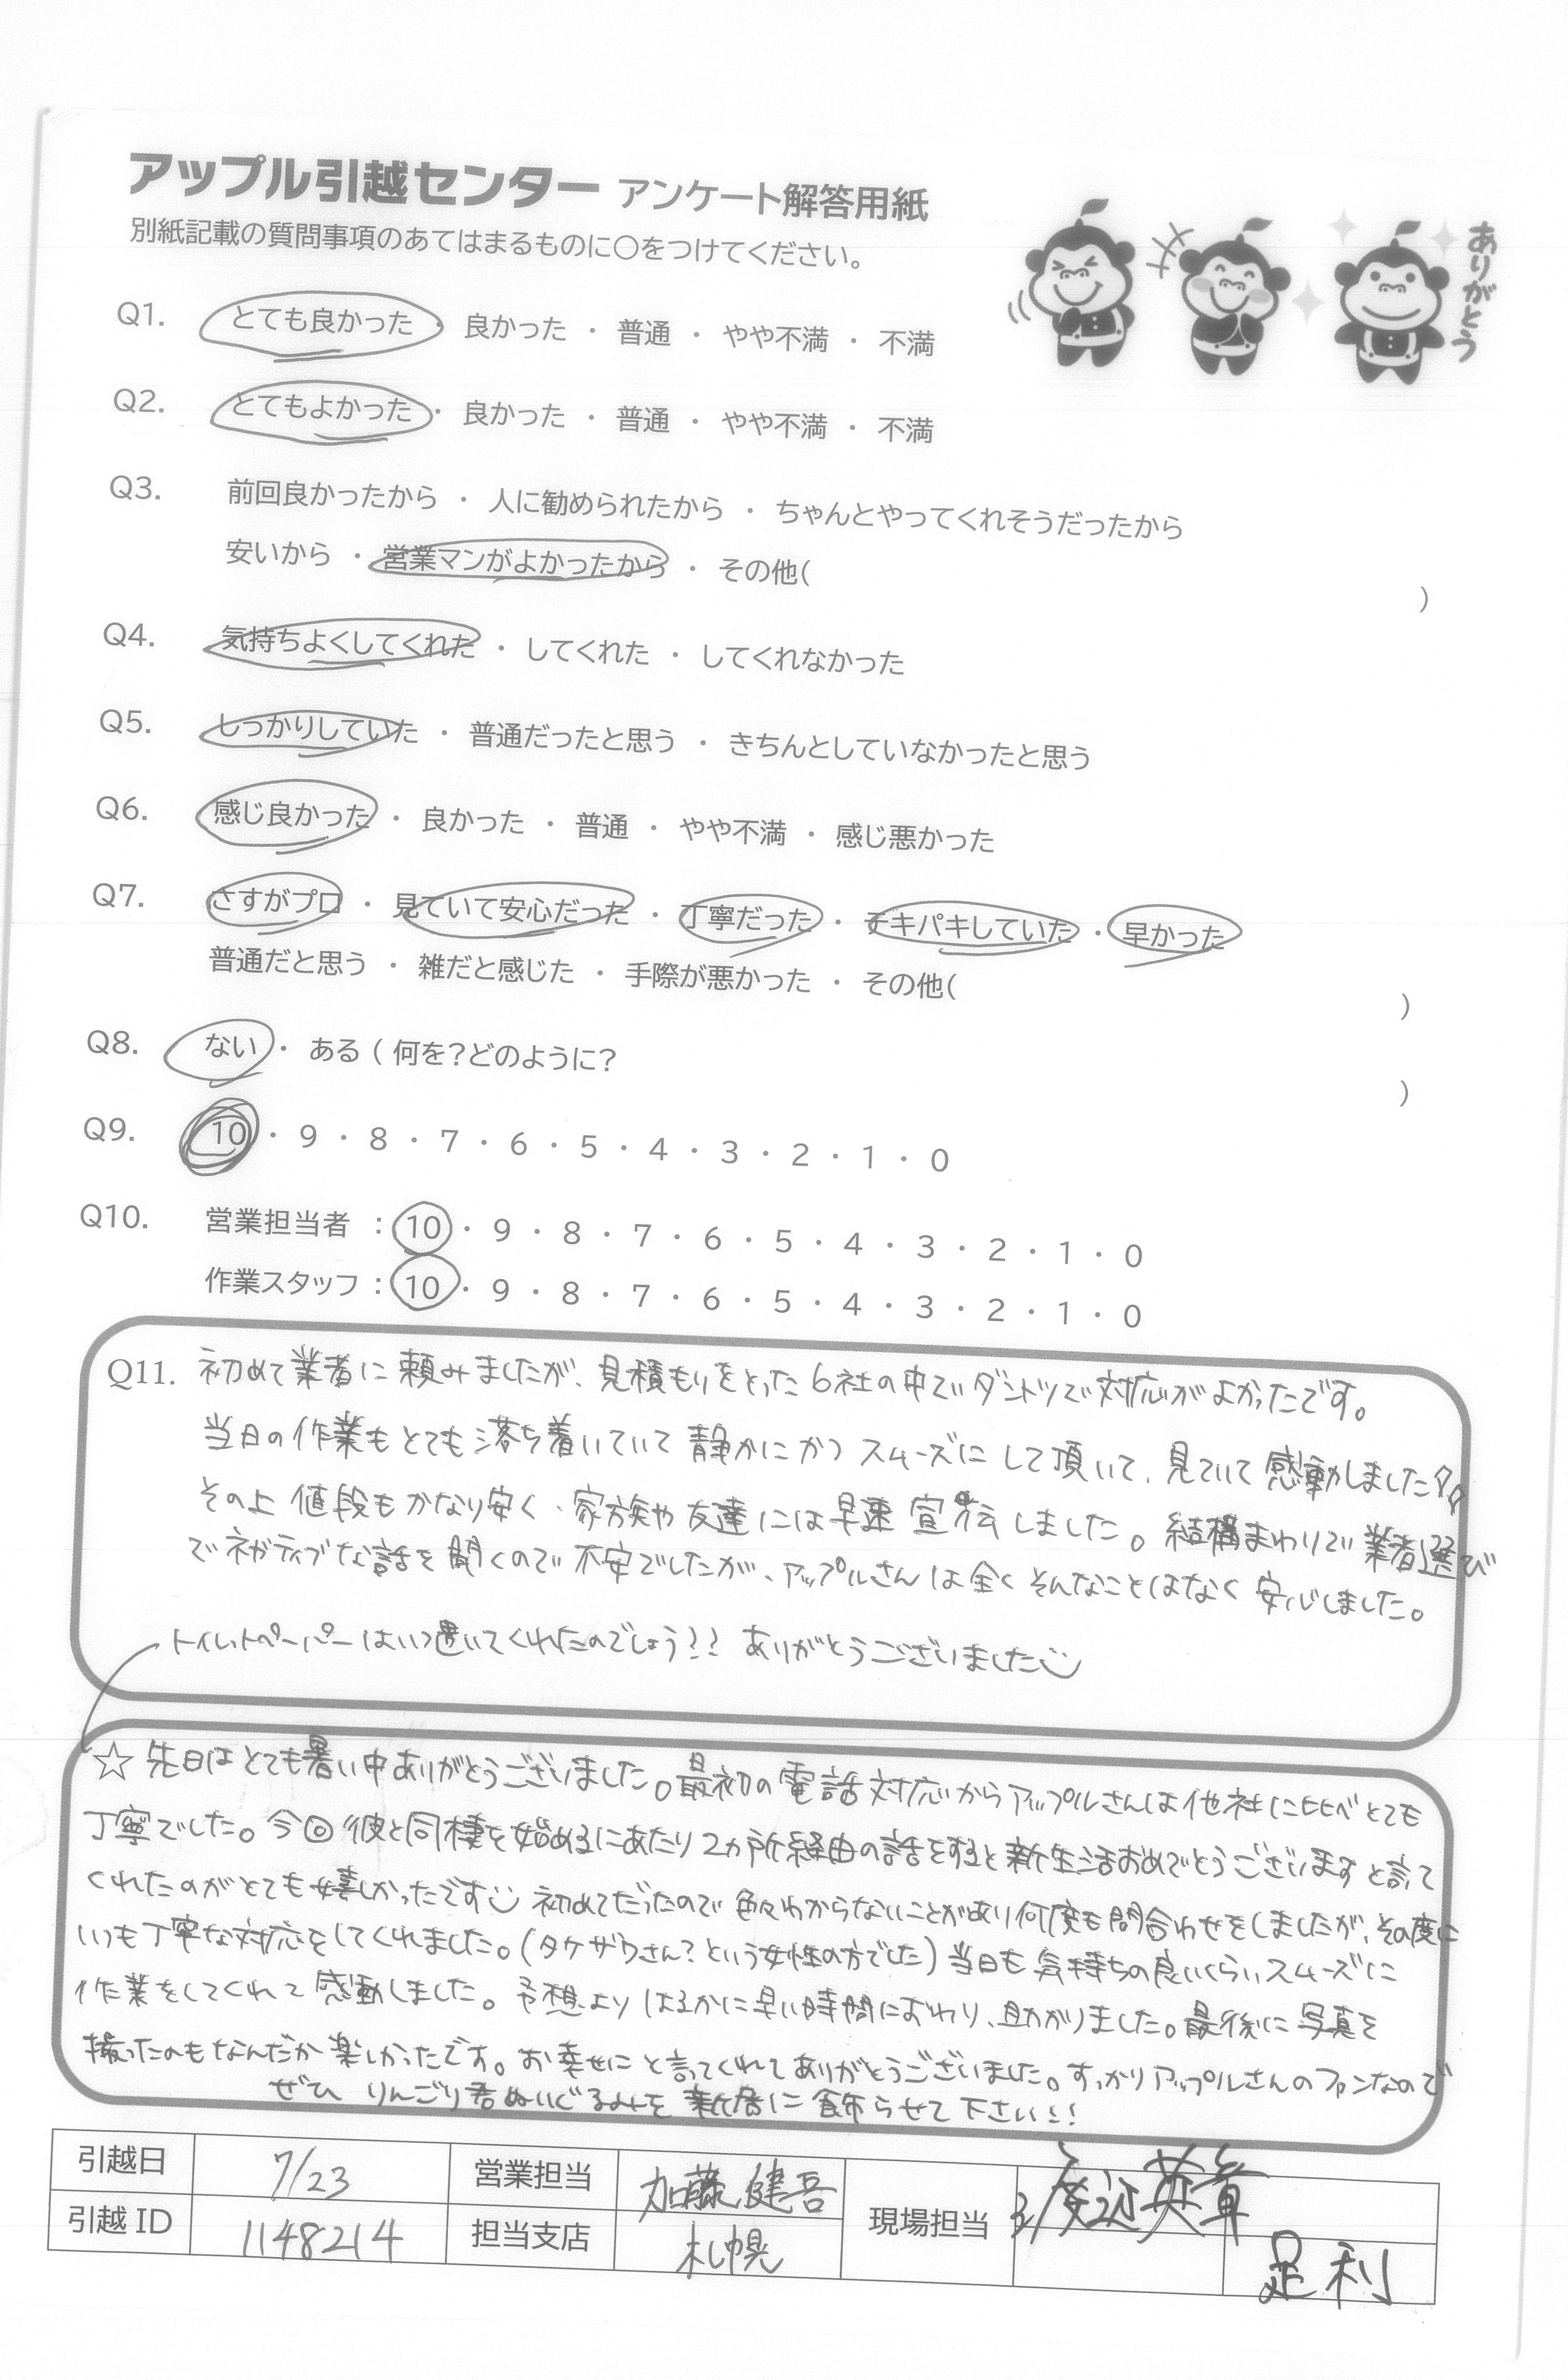 アップル引越センター アンケート解答用紙
別紙記載の質問事項のあてはまるものに○をつけてください。
ありがとう
Q1. とても良かった ・ 良かった ・ 普通 ・ やや不満 ・ 不満
Q2. とてもよかった ・ 良かった ・ 普通 ・ やや不満 ・ 不満
Q3. 前回良かったから ・ 人に勧められたから ・ ちゃんとやってくれそうだったから
安いから ・ 営業マンがよかったから ・ その他( )
Q4. 気持ちよくしてくれた ・ してくれた ・ してくれなかった
Q5. しっかりしていた ・ 普通だったと思う ・ きちんとしていなかったと思う
Q6. 感じ良かった ・ 良かった ・ 普通 ・ やや不満 ・ 感じ悪かった
Q7. さすがプロ ・ 見ていて安心だった ・ 丁寧だった ・ テキパキしていた ・ 早かった
普通だと思う ・ 雑だと感じた ・ 手際が悪かった ・ その他( )
Q8. ない ・ ある ( 何を?どのように? )
Q9. 10 ・ 9 ・ 8 ・ 7 ・ 6 ・ 5 ・ 4 ・ 3 ・ 2 ・ 1 ・ 0
Q10. 営業担当者 : 10 ・ 9 ・ 8 ・ 7 ・ 6 ・ 5 ・ 4 ・ 3 ・ 2 ・ 1 ・ 0
作業スタッフ : 10 ・ 9 ・ 8 ・ 7 ・ 6 ・ 5 ・ 4 ・ 3 ・ 2 ・ 1 ・ 0
Q11. 初めて業者に頼みましたが、見積もりをとった6社の中でダントツで対応がよかったです。
当日の作業もとても落ち着いていて静かにかつスムーズにして頂いて、見ていて感動しました
その上値段もかなり安く、家族や友達には早速宣伝しました。結構まわりで業者選び
でネガティブな話を聞くので不安でしたが、アップルさんは全くそんなことはなく安心しました。
トイレットペーパーはいつ置いてくれたのでしょう?? ありがとうございました
☆先日はとても暑い中ありがとうございました。最初の電話対応からアップルさんは他社に比べとても
丁寧でした。今回彼と同棲を始めるにあたり2カ所経由の話をすると新生活おめでとうございますと言って
くれたのがとても嬉しかったです 初めてだったので色々わからないことがあり何度も問合わせをしましたが、その度に
いつも丁寧な対応をしてくれました。(タケザワさん?という女性の方でした) 当日も気持ちの良いくらいスムーズに
作業をしてくれて感動しました。予想よりはるかに早い時間におわり、助かりました。最後に写真を
撮ったのもなんだか楽しかったです。お幸せにと言ってくれてありがとうございました。すっかりアップルさんのファンなので
ぜひ りんごり君ぬいぐるみを新居に飾らせて下さい!!
引越日 7/23 営業担当 加藤健吾 現場担当 渡辺英章
引越 ID 1148214 担当支店 札幌 足利